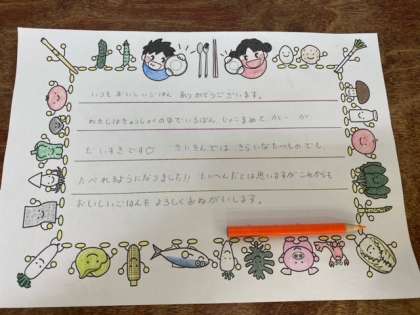 いつもおいしいごはん ありがとうございます。
わたしはきゅうしょくの中でいちばん、じゃこまめと、カレーが
だいすきです♡ さいきんでは、きらいなたべものでも、
たべれるようになりました!! たいへんだとは思いますがこれからも
おいしいごはんをよろしくおねがいします。